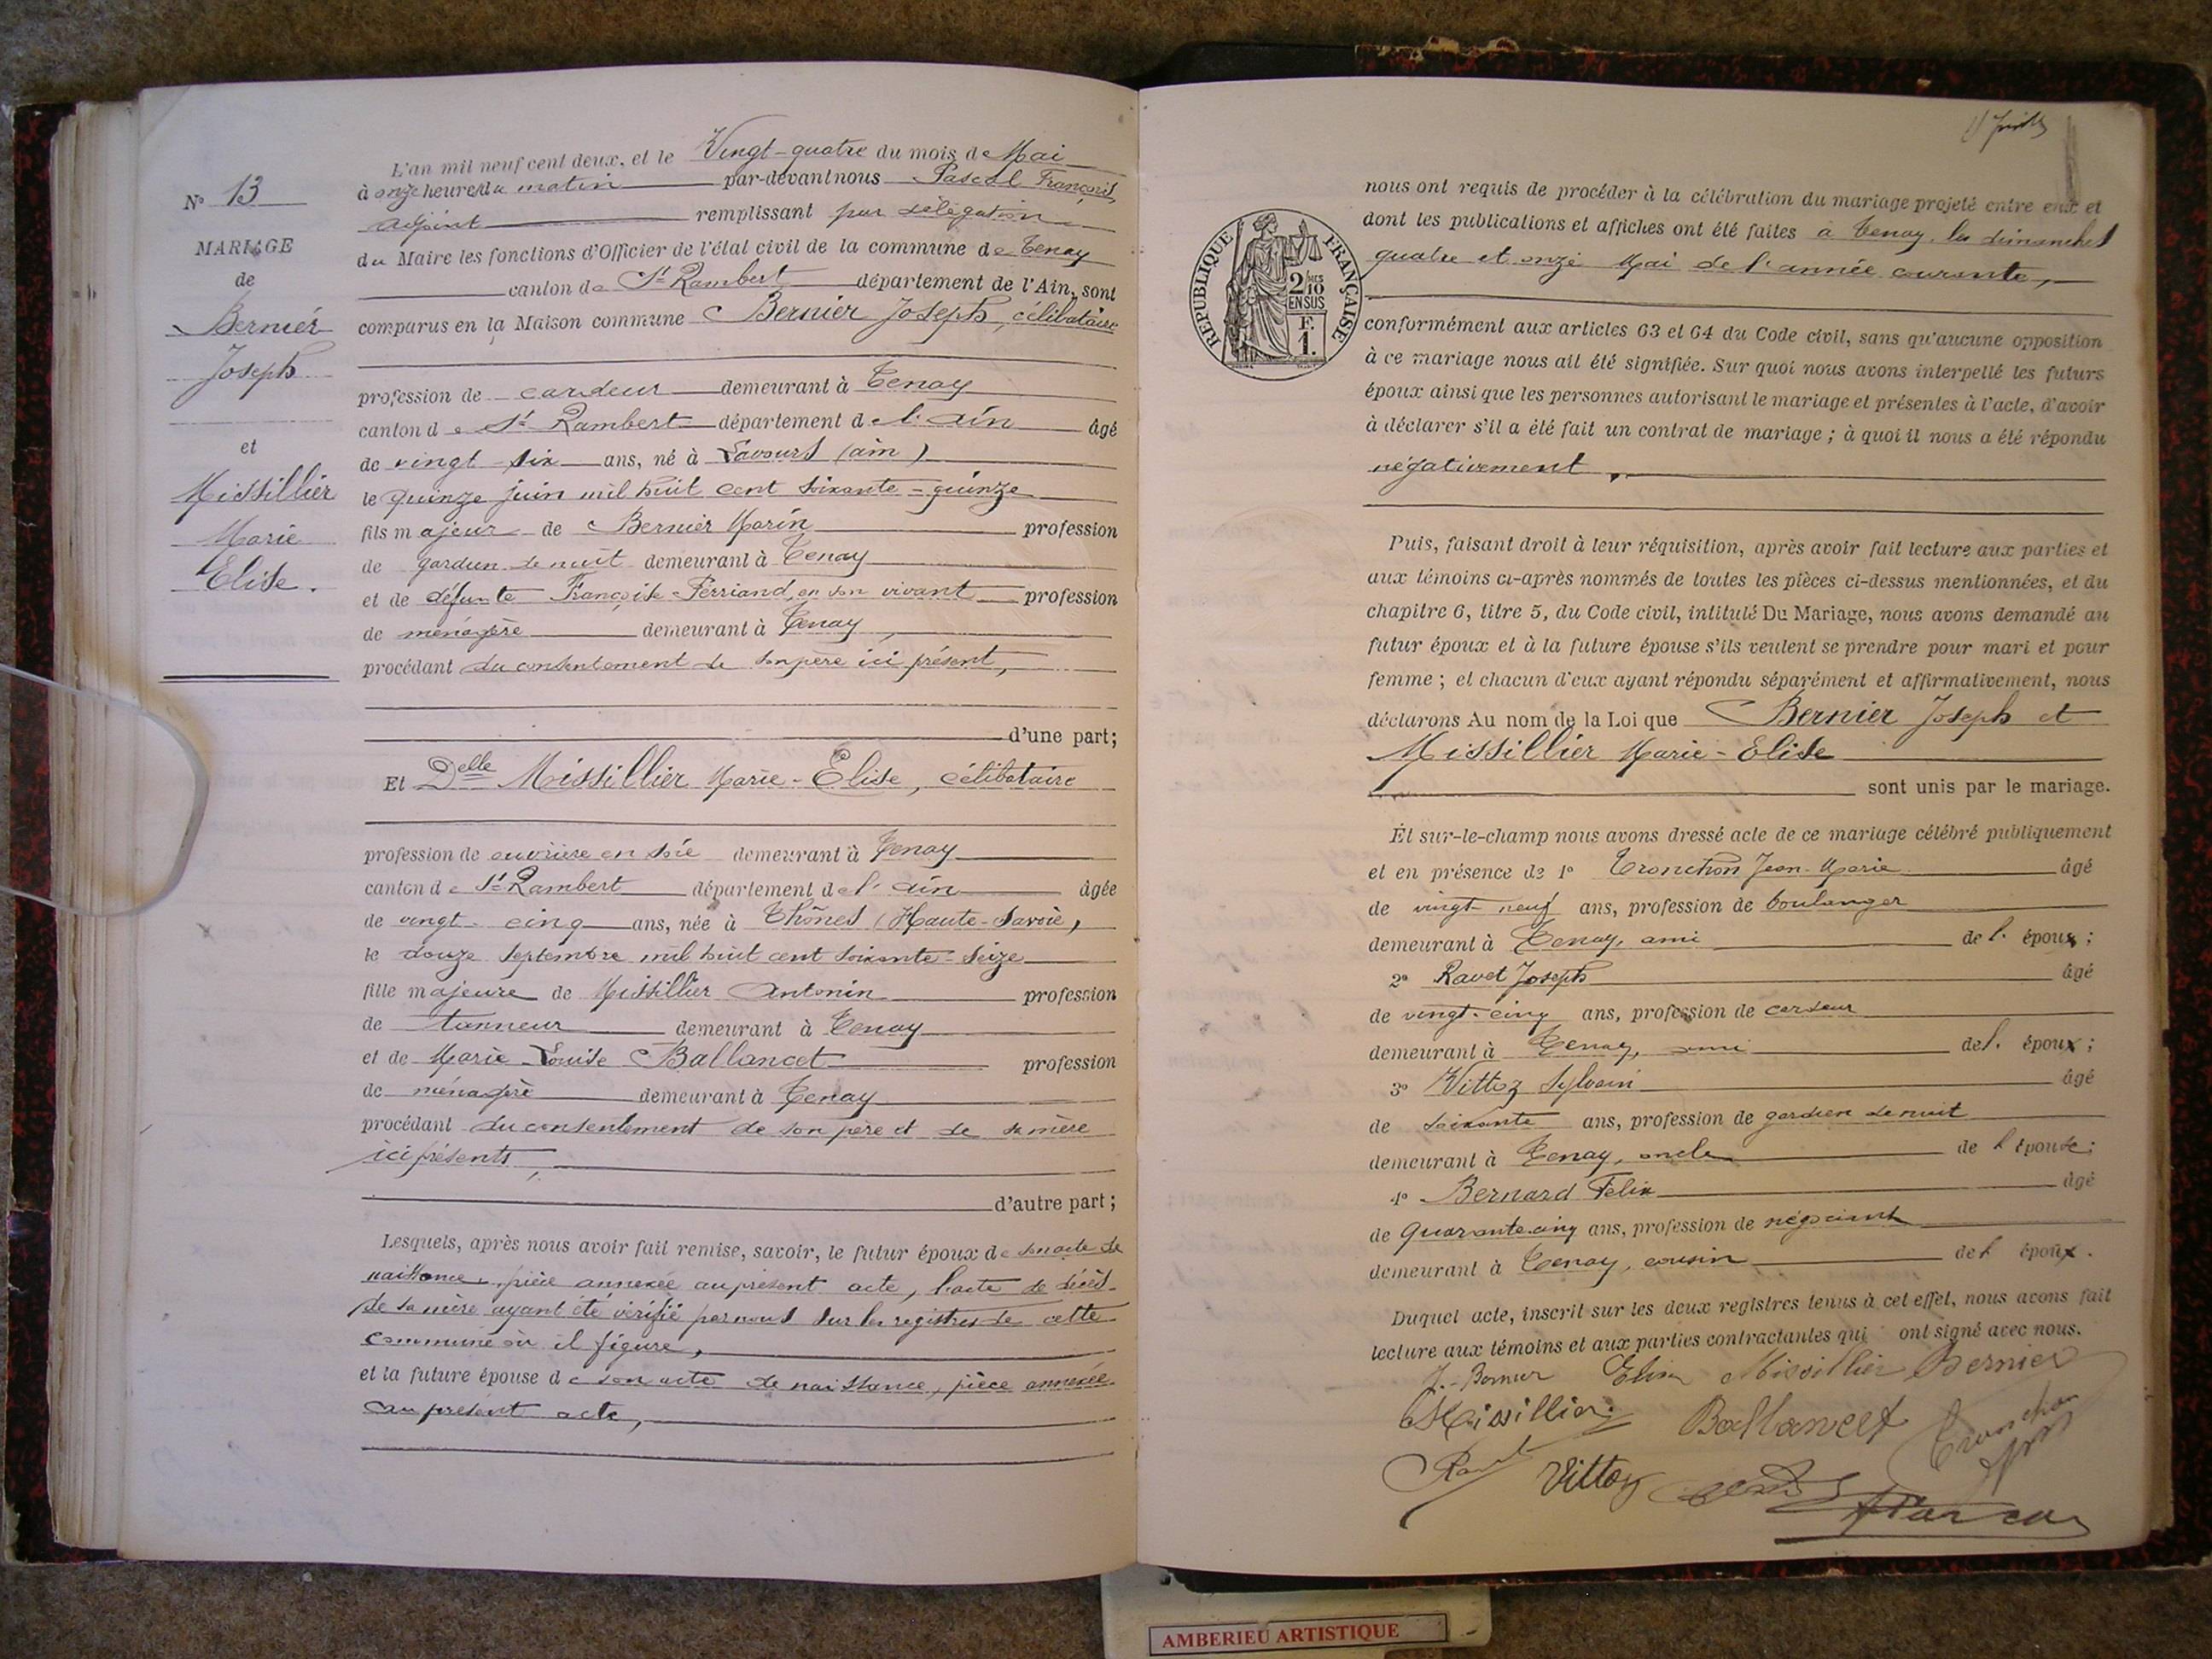 N° 13
MARIAGE
de
Bernier
Joseph
et
Missillier
Marie
Elise.
L'an mil neuf cent deux, et le Vingt-quatre du mois de Mai
à onze heures du matin par-devant nous Pascal François,
adjoint remplissant par délégation
du Maire les fonctions d'Officier de l'état civil de la commune de Tenay
canton de St Rambert département de l'Ain, sont
comparus en la Maison commune Bernier Joseph, célibataire
profession de cardeur demeurant à Tenay
canton de St Rambert département de l'Ain âgé
de vingt-six ans, né à Lavours (ain)
le quinze juin mil huit cent soixante-quinze
fils majeur de Bernier Marin profession
de gardien de nuit demeurant à Tenay
et de défunte Françoise Perriand, en son vivant profession
de ménagère demeurant à Tenay,
procédant du consentement de son père ici présent,
d'une part;
Et Delle Missillier Marie-Elise, célibataire
profession de ouvrière en soie demeurant à Tenay
canton de St Rambert département de l'ain âgée
de vingt-cinq ans, née à Thônes (Haute-Savoie,
le douze septembre mil huit cent soixante-seize
fille majeure de Missillier Antonin profession
de tanneur demeurant à Tenay
et de Marie Louise Ballancet profession
de ménagère demeurant à Tenay
procédant du consentement de son père et de sa mère
ici présents,
d'autre part;
Lesquels, après nous avoir fait remise, savoir, le futur époux de son acte de
naissance, pièce annexée au présent acte, l'acte de décès
de sa mère ayant été vérifié par nous sur les registres de cette
commune où il figure,
et la future épouse de son acte de naissance, pièce annexée
au présent acte,
REPUBLIQUE FRANÇAISE
2/10 MES
EN SUS
F.
1.
nous ont requis de procéder à la célébration du mariage projeté entre eux et
dont les publications et affiches ont été faites à Tenay, les dimanches
quatre et onze Mai de l'année courante,
conformément aux articles 63 et 64 du Code civil, sans qu'aucune opposition
à ce mariage nous ait été signifiée. Sur quoi nous avons interpellé les futurs
époux ainsi que les personnes autorisant le mariage et présentes à l'acte, d'avoir
à déclarer s'il a été fait un contrat de mariage; à quoi il nous a été répondu
négativement.
Puis, faisant droit à leur réquisition, après avoir fait lecture aux parties et
aux témoins ci-après nommés de toutes les pièces ci-dessus mentionnées, et du
chapitre 6, titre 5, du Code civil, intitulé Du Mariage, nous avons demandé au
futur époux et à la future épouse s'ils veulent se prendre pour mari et pour
femme; et chacun d'eux ayant répondu séparément et affirmativement, nous
déclarons Au nom de la Loi que Bernier Joseph et
Missillier Marie-Elise
sont unis par le mariage.
Et sur-le-champ nous avons dressé acte de ce mariage célébré publiquement
et en présence de 1° Tronchon Jean-Marie âgé
de vingt-neuf ans, profession de boulanger
demeurant à Tenay, ami de l'époux;
2° Ravet Joseph âgé
de vingt-cinq ans, profession de cardeur
demeurant à Tenay, ami de l'époux;
3° Vittoz Sylvain âgé
de soixante ans, profession de gardien de nuit
demeurant à Tenay, oncle de l'épouse;
4° Bernard Felix âgé
de quarante-cinq ans, profession de négociant
demeurant à Tenay, cousin de l'époux.
Duquel acte, inscrit sur les deux registres tenus à cet effet, nous avons fait
lecture aux témoins et aux parties contractantes qui ont signé avec nous.
J. Bernier Elise Missillier Bernier
Missillier Ballancet Tronchon
Ravet Vittoz
AMBERIEU ARTISTIQUE